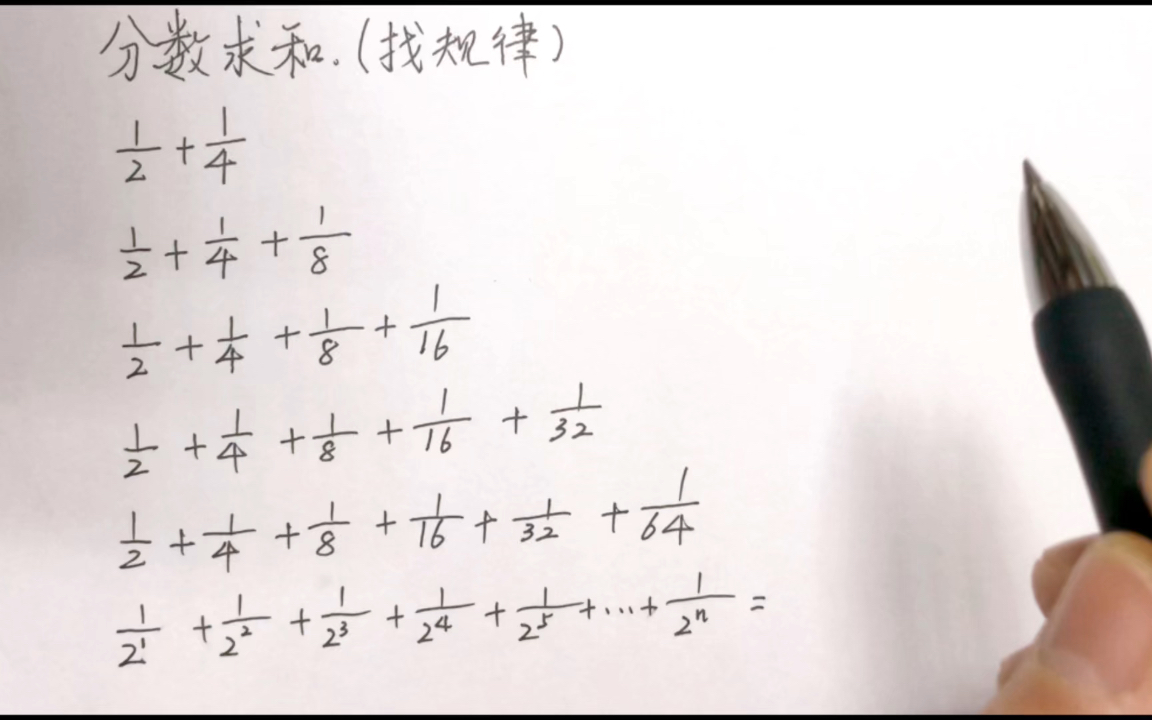 分数求和.(找规律)
1/2 + 1/4
1/2 + 1/4 + 1/8
1/2 + 1/4 + 1/8 + 1/16
1/2 + 1/4 + 1/8 + 1/16 + 1/32
1/2 + 1/4 + 1/8 + 1/16 + 1/32 + 1/64
1/2¹ + 1/2² + 1/2³ + 1/2⁴ + 1/2⁵ + ... + 1/2ⁿ =